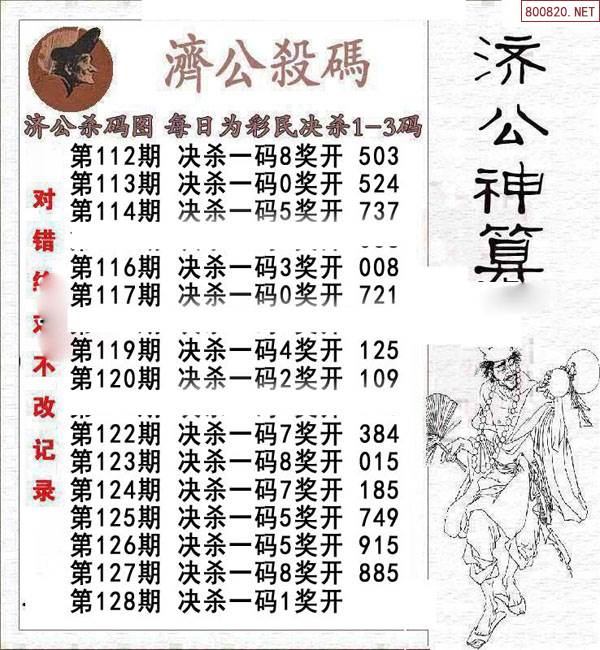 800820.NET
濟公殺碼
济公杀码图 每日为彩民决杀1-3码
第112期 决杀一码8奖开 503
第113期 决杀一码0奖开 524
第114期 决杀一码5奖开 737
第116期 决杀一码3奖开 008
第117期 决杀一码0奖开 721
第119期 决杀一码4奖开 125
第120期 决杀一码2奖开 109
第122期 决杀一码7奖开 384
第123期 决杀一码8奖开 015
第124期 决杀一码7奖开 185
第125期 决杀一码5奖开 749
第126期 决杀一码5奖开 915
第127期 决杀一码8奖开 885
第128期 决杀一码1奖开
对错不改记录
济公神算